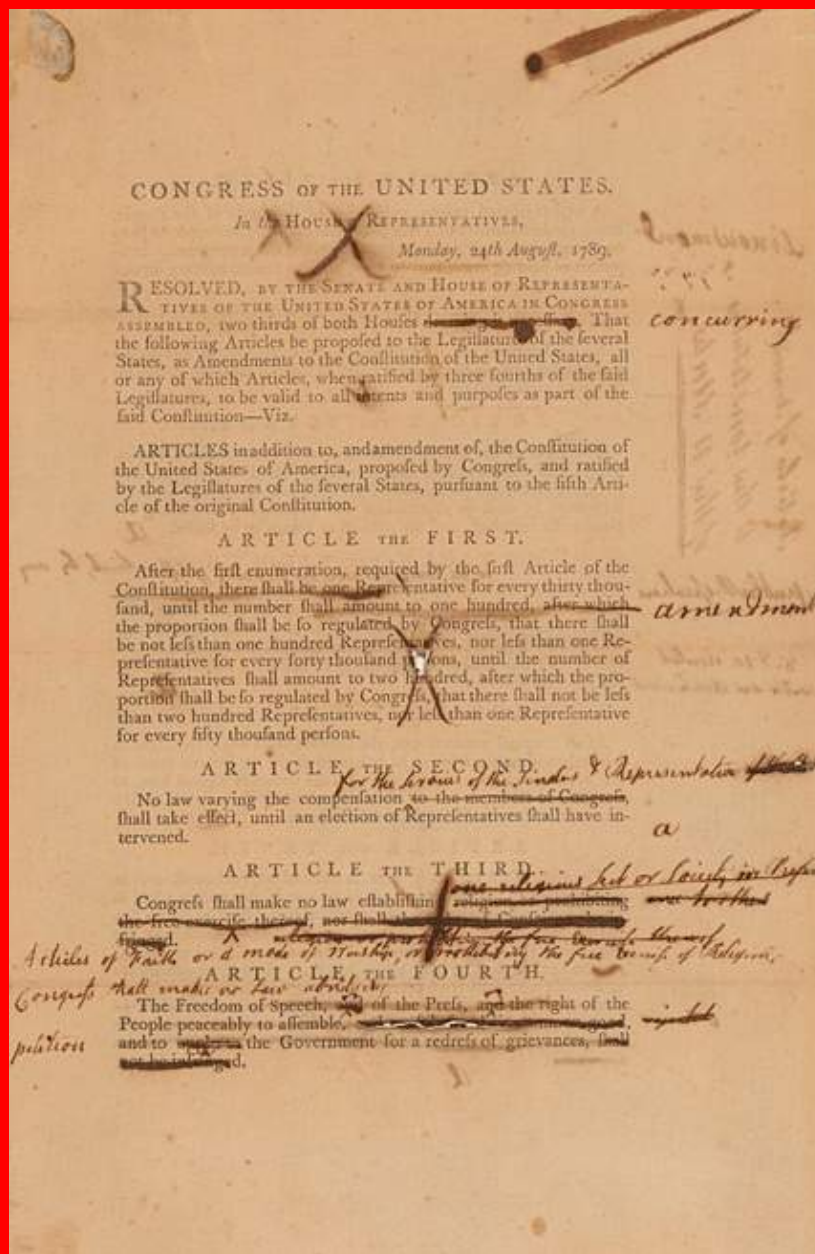 CONGRESS OF THE UNITED STATES.
In the HOUSE of REPRESENTATIVES,
Monday, 24th Auguſt, 1789.
RESOLVED, BY THE SENATE AND HOUSE OF REPRESENTA-
TIVES OF THE UNITED STATES OF AMERICA IN CONGRESS
ASSEMBLED, two thirds of both Houſes . That concurring
the following Articles be propoſed to the Legiſlatures of the ſeveral
States, as Amendments to the Conſtitution of the United States, all
or any of which Articles, when ratified by three fourths of the ſaid
Legiſlatures, to be valid to all intents and purpoſes as part of the
ſaid Conſtitution—Viz.
ARTICLES in addition to, and amendment of, the Conſtitution of
the United States of America, propoſed by Congreſs, and ratified
by the Legiſlatures of the ſeveral States, purſuant to the fifth Arti-
cle of the original Conſtitution.
ARTICLE THE FIRST.
After the firſt enumeration, required by the firſt Article of the
Conſtitution, there ſhall be one Repreſentative for every thirty thou-
ſand, until the number ſhall amount to one hundred, after which amendment
the proportion ſhall be ſo regulated by Congreſs, that there ſhall
be not leſs than one hundred Repreſentatives, nor leſs than one Re-
preſentative for every forty thouſand perſons, until the number of
Repreſentatives ſhall amount to two hundred, after which the pro-
portion ſhall be ſo regulated by Congreſs, that there ſhall not be leſs
than two hundred Repreſentatives, nor leſs than one Repreſentative
for every fifty thouſand perſons.
ARTICLE THE SECOND.
for the of the & Representatives
No law varying the compenſation to the members of Congreſs,
ſhall take effect, until an election of Repreſentatives ſhall have in-
tervened. a
ARTICLE THE THIRD.
one religious Sect or Society in
Congreſs ſhall make no law eſtabliſhing religion or prohibiting
the free exerciſe thereof, nor ſhall the
fringed.
Articles of Faith or a mode of Worship, or prohibiting the free exercise of Religion,
ARTICLE THE FOURTH.
Congreſs shall make no Law abridging
The Freedom of Speech, of the Preſs, and the right of the
People peaceably to aſſemble,
petition and to the Government for a redreſs of grievances, ſhall
not be infringed.